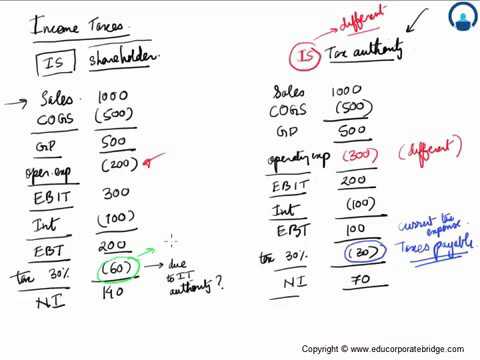 Income Taxes
IS shareholder
Sales 1000
COGS (500)
GP 500
oper. exp (200)
EBIT 300
Int (100)
EBT 200
tax 30% (60) → due to IT authority?
NI 140
different
IS Tax authority
Sales 1000
COGS (500)
GP 500
operating exp (300) (different)
EBIT 200
Int (100)
EBT 100
current tax expense
tax 30% (30) Taxes payable
NI 70
Copyright © www.educorporatebridge.com